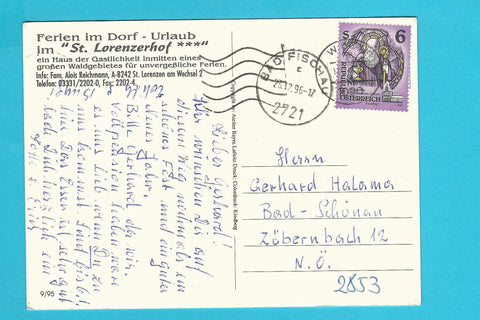 Ferien im Dorf - Urlaub
im "St. Lorenzerhof ***"
ein Haus der Gastlichkeit inmitten eines
großen Waldgebietes für unvergeßliche Ferien.
Info: Fam. Alois Reichmann, A-8242 St. Lorenzen am Wechsel 2
Tel. 03331/2202-0, Fax: 2202-4
Lieber Gerhard!!
Wir wünschen Dir auf
diesem Weg nochmals ein
schönes Fest und ein gutes
neues Jahr.
Bitte Gerhard da wir
Vollpension haben wäre
es uns lieb wenn Du zu
uns kommst. Sind bis 6.1.
Das Essen ist sehr gut
herzlich ein
9/95
BAD FISCHAU
c
2721
S 6
REPUBLIK
ÖSTERREICH
Herrn
Gerhard Halama
Bad-Schönau
Zöbernbach 12
N.Ö.
2853